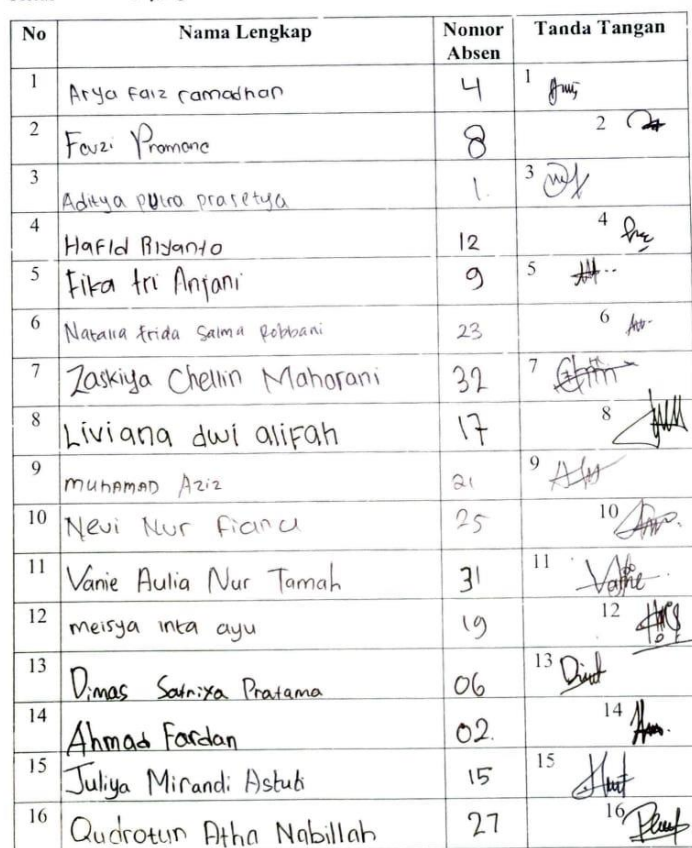 No Nama Lengkap Nomor Absen Tanda Tangan
1 Arya Faiz ramadhan 4 1
2 Fauzi Pramana 8 2
3 Aditya putra prasetya 1. 3
4 Hafid Riyanto 12 4
5 Fika tri Anjani 9 5
6 Natalia frida Salma Robbani 23 6
7 Zaskiya Chellin Maharani 32 7
8 Liviana dwi alifah 17 8
9 muhAMAD Aziz 21 9
10 Nevi Nur Fiana 25 10
11 Vanie Aulia Nur Tamah 31 11
12 meisya inta ayu 19 12
13 Dimas Satriya Pratama 06 13
14 Ahmad Fardan 02. 14
15 Juliya Mirandi Astuti 15 15
16 Qudrotun Atha Nabillah 27 16